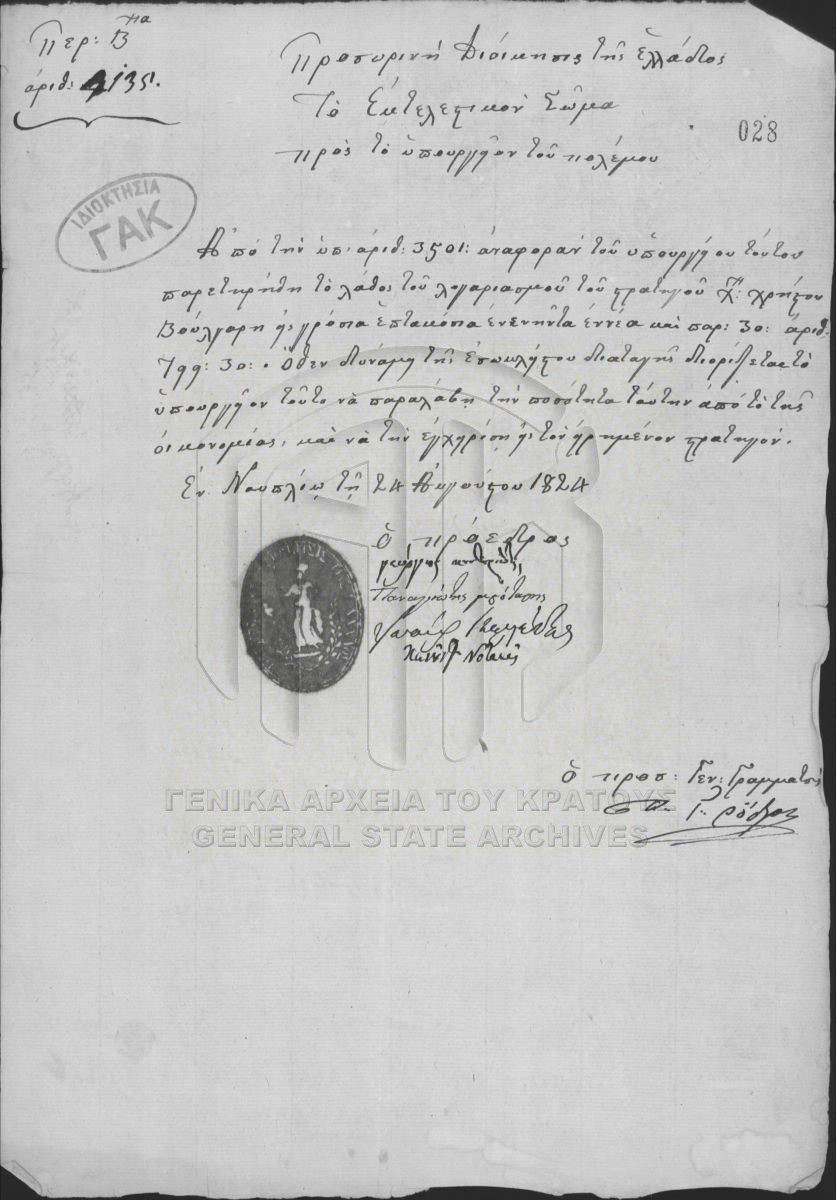 Περ: Βʹ
ἀριθ: 4135.
Προσωρινὴ Διοίκησις τῆς Ἑλλάδος
Τὸ Ἐκτελεστικὸν Σῶμα
πρὸς τὸ ὑπουργεῖον τοῦ πολέμου
028
ΙΔΙΟΚΤΗΣΙΑ
ΓΑΚ
Ἀπὸ τὴν ὑπ' ἀριθ: 3501: ἀναφορὰν τοῦ ὑπουργείου τούτου
παρετηρήθη τὸ λάθος τοῦ λογαριασμοῦ τοῦ στρατηγοῦ Χ": χρήστου
Βούλγαρη εἰς γρόσια ἑπτακόσια ἐνενήντα ἐννέα καὶ παρ: 30: ἀριθ:
799: 30: . Ὅθεν δυνάμει τῆς ἐπωλήστου διαταγῆς διορίζεται τὸ
ὑπουργεῖον τοῦτο νὰ παραλάβῃ τὴν ποσότητα ταύτην ἀπὸ τὸ τῆς
οἰκονομίας, καὶ νὰ τὴν ἐγχειρίσῃ εἰς τὸν εἰρημένον στρατηγόν.
Ἐν Ναυπλίῳ τῇ 24 Αὐγούστου 1824
Ὁ πρόεδρος
γεώργιος κουντουριώτης
Παναγιώτης μπότασης
Ὁ προσ: Γεν: Γραμματεὺς
Π. Γ. Ρόδιος
ΓΕΝΙΚΑ ΑΡΧΕΙΑ ΤΟΥ ΚΡΑΤΟΥΣ
GENERAL STATE ARCHIVES